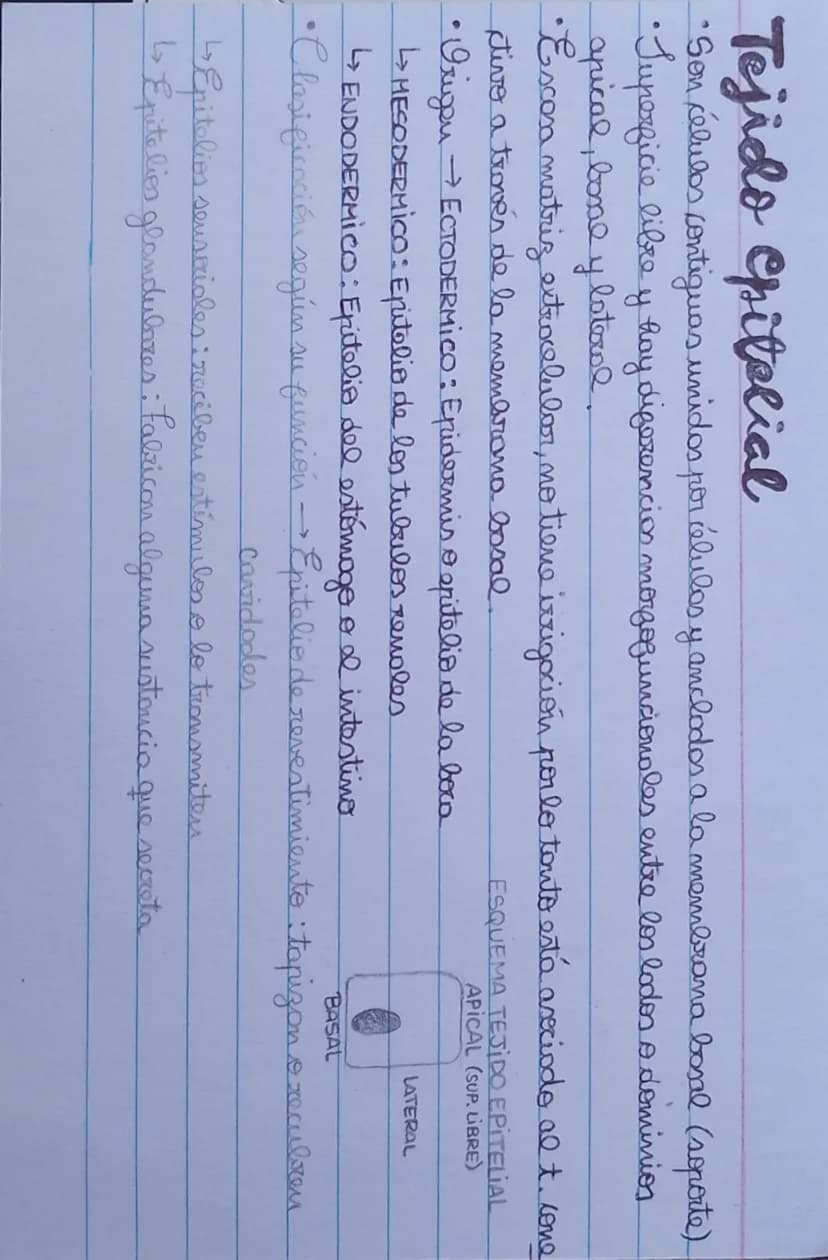 Tejido epitelial
• Son células contiguas unidas por células y ancladas a la membrana basal (soporte)
• Superficie libre y hay diferencias morfofuncionales entre los lados o dominios
apical, basal y lateral.
• Escasa matriz extracelular, no tiene irrigación por lo tanto está asociado al t. cone
ctivo a través de la membrana basal.
• Origen → ECTODERMICO: Epidermis o epitelio de la boca
↳ MESODERMICO: Epitelio de los tubulos renales
↳ ENDODERMICO: Epitelio del estómago o el intestino
ESQUEMA TEJIDO EPITELIAL
APICAL (SUP. LIBRE)
LATERAL
BASAL
• Clasificación según su función → Epitelio de revestimiento: tapizan o recubren
cavidades
↳ Epitelios sensoriales: reciben estímulos o lo transmiten
↳ Epitelios glandulares: Fabrican alguna sustancia que secreta